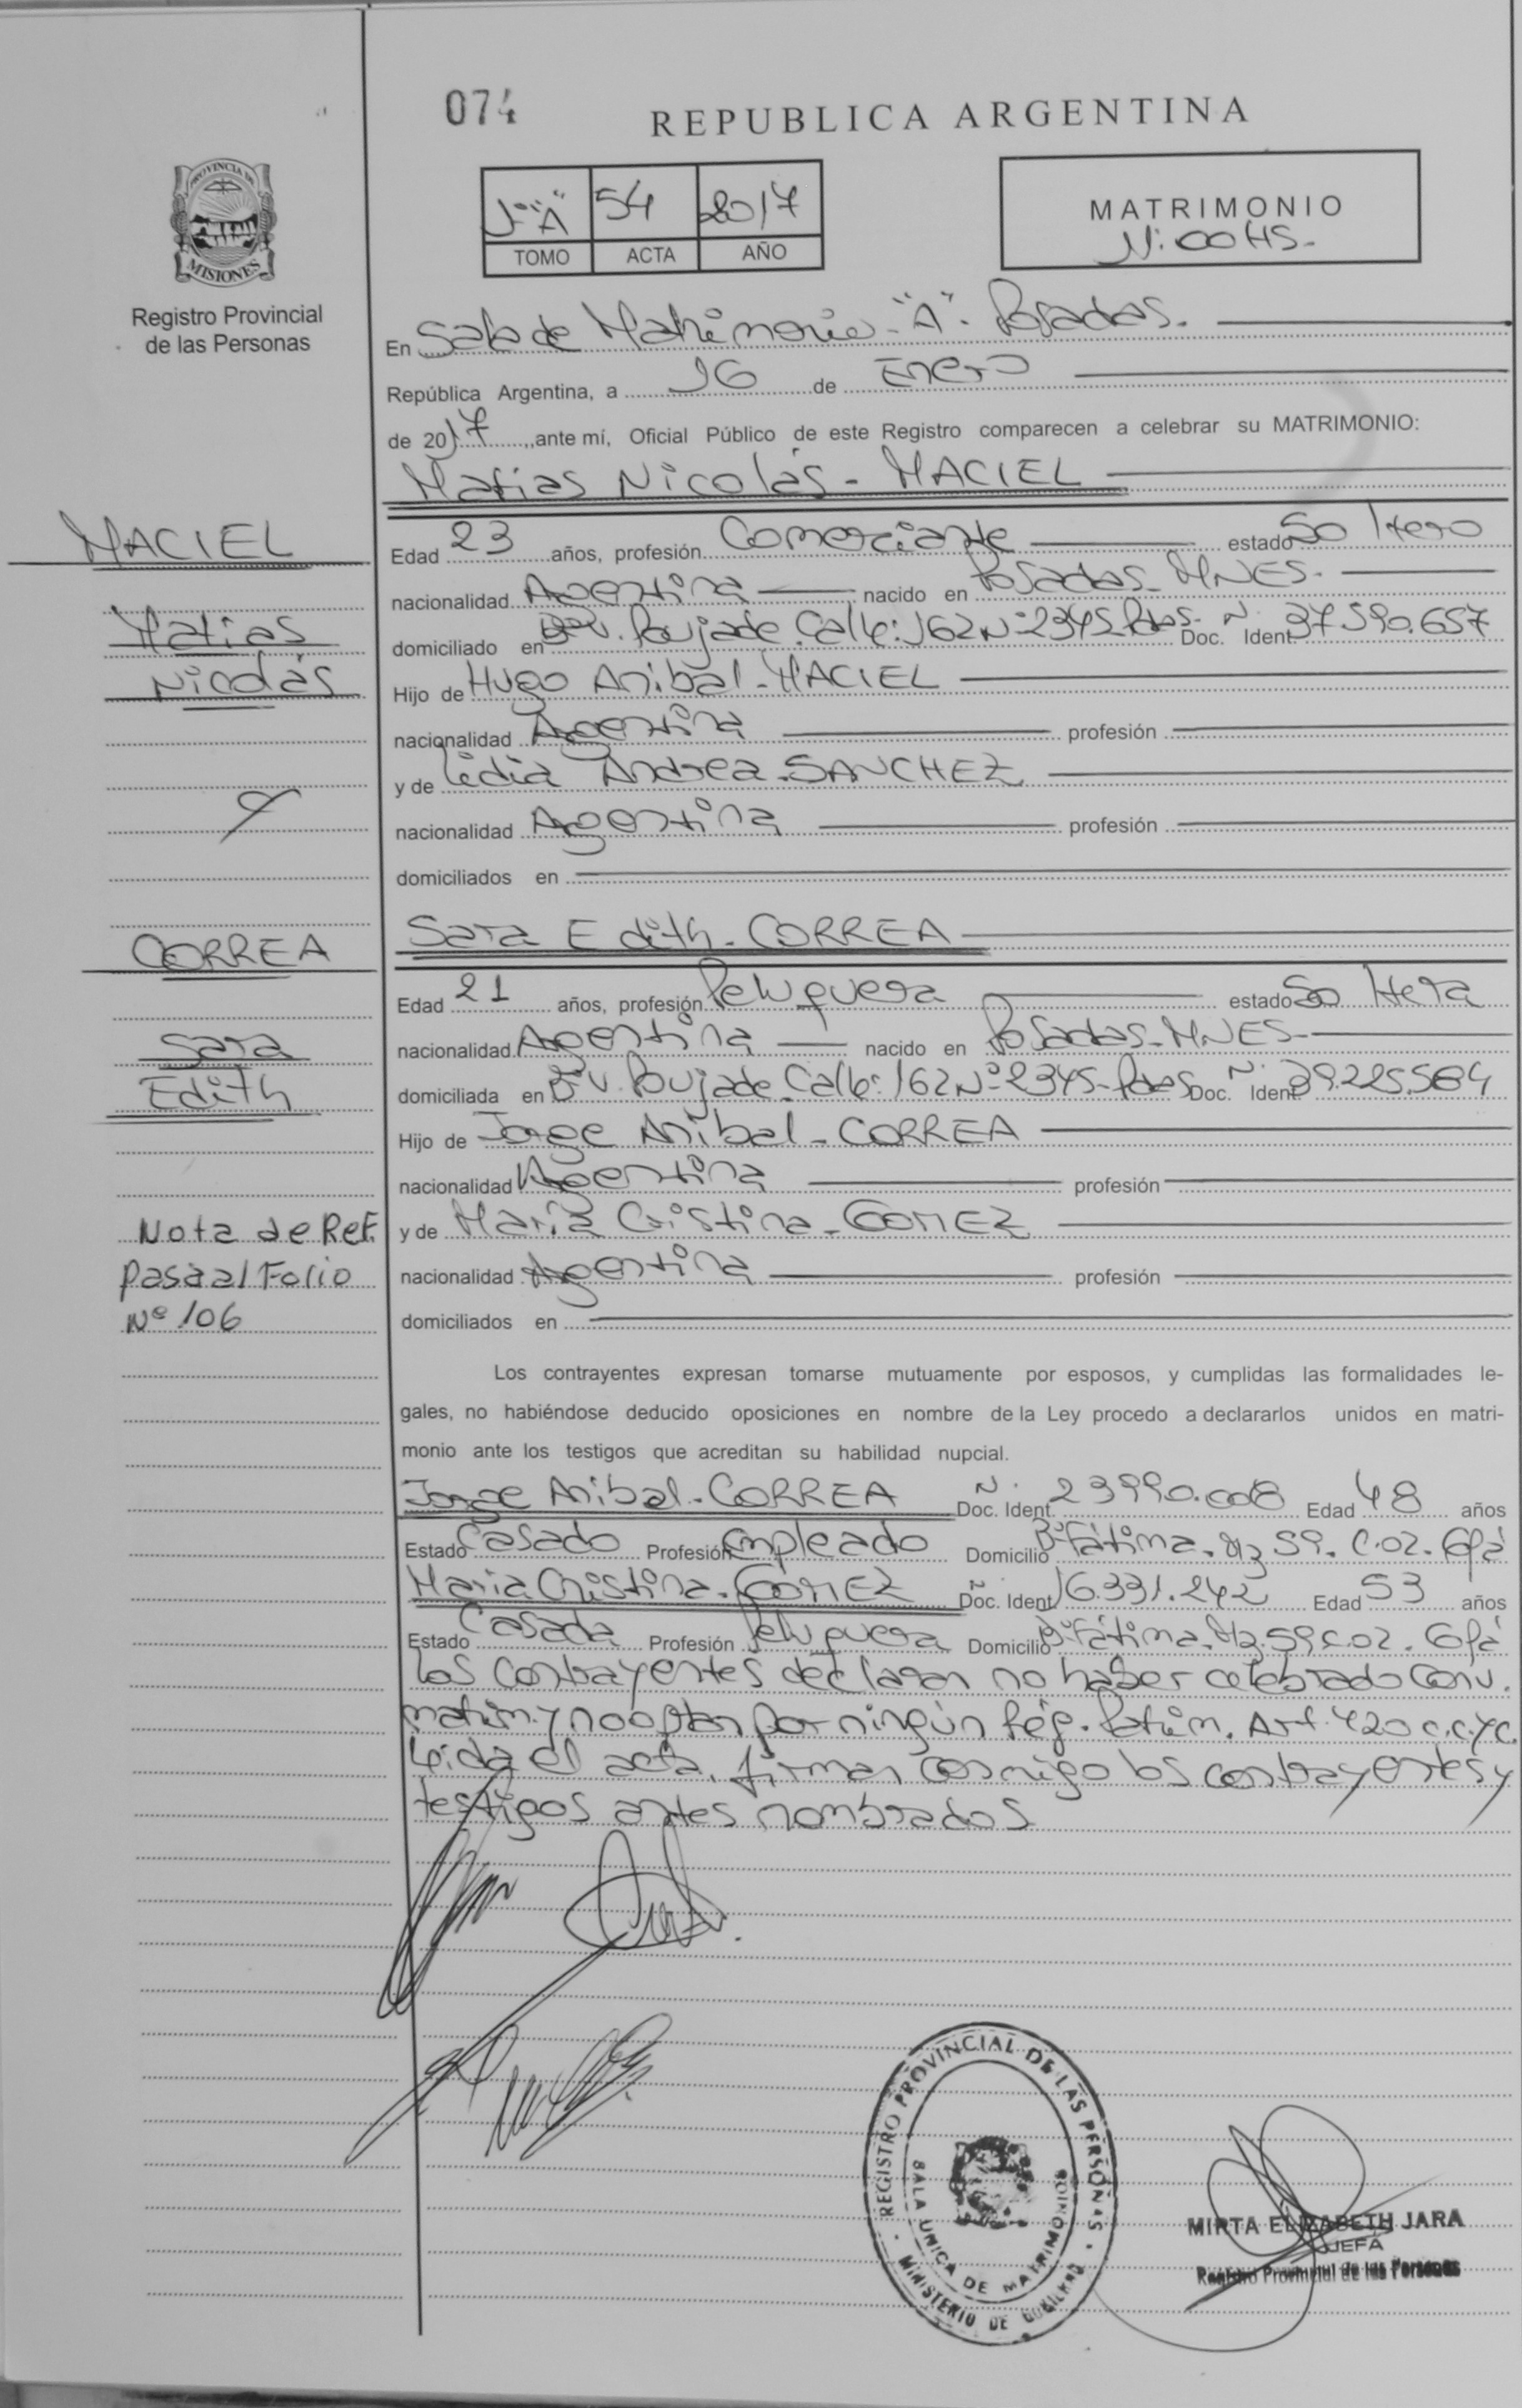 074
REPUBLICA ARGENTINA
PROVINCIA DE
MISIONES
Registro Provincial
de las Personas
"A" 54 2017
TOMO ACTA AÑO
MATRIMONIO
En Sala de Matrimonio - "A" - Posadas.
República Argentina, a 16 de Enero
de 2017, ante mí, Oficial Público de este Registro comparecen a celebrar su MATRIMONIO:
Matias Nicolás - MACIEL
MACIEL
Matias
Nicolás
Edad 23 años, profesión Comerciante estado Soltero
nacionalidad Argentina nacido en Posadas - MNES.
domiciliado en B° V. Poujade Calle: 162 N° 2345 - Pdas. Doc. Ident. N° 37.590.657
Hijo de Hugo Anibal - MACIEL
nacionalidad Argentina profesión
y de Lidia Andrea - SANCHEZ
nacionalidad Argentina profesión
domiciliados en
CORREA
Sara
Edith
Sara Edith - CORREA
Edad 21 años, profesión Peluquera estado Soltera
nacionalidad Argentina nacido en Posadas - MNES -
domiciliada en B° V. Poujade Calle: 162 N° 2345 - Pdas Doc. Ident. N° 39.225.564
Hijo de Jorge Anibal - CORREA
nacionalidad Argentina profesión
y de María Cristina - GOMEZ
nacionalidad Argentina profesión
domiciliados en
Nota de Ref.
pasa al Folio
Nº 106
Los contrayentes expresan tomarse mutuamente por esposos, y cumplidas las formalidades le-
gales, no habiéndose deducido oposiciones en nombre de la Ley procedo a declararlos unidos en matri-
monio ante los testigos que acreditan su habilidad nupcial.
Jorge Anibal - CORREA Doc. Ident. N° 23990.008 Edad 48 años
Estado Casado Profesión Empleado Domicilio B° Fátima. Mz 59. C.02. Gpá
Maria Cristina - GOMEZ Doc. Ident. N° 16.331.242 Edad 53 años
Estado Casada Profesión Peluquera Domicilio B° Fátima. Mz. 59 C.02. Gpá
Los contrayentes declaran no haber celebrado Conv.
matrim. y no optan por ningún Rég. Patrim. Art. 420 C.C.yC.
Leida el acta, firman conmigo los contrayentes y
testigos antes nombrados
REGISTRO PROVINCIAL DE LAS PERSONAS
SALA UNICA DE MATRIMONIOS
MINISTERIO DE GOBIERNO
MIRTA ELIZABETH JARA
JEFA
Registro Provincial de las Personas